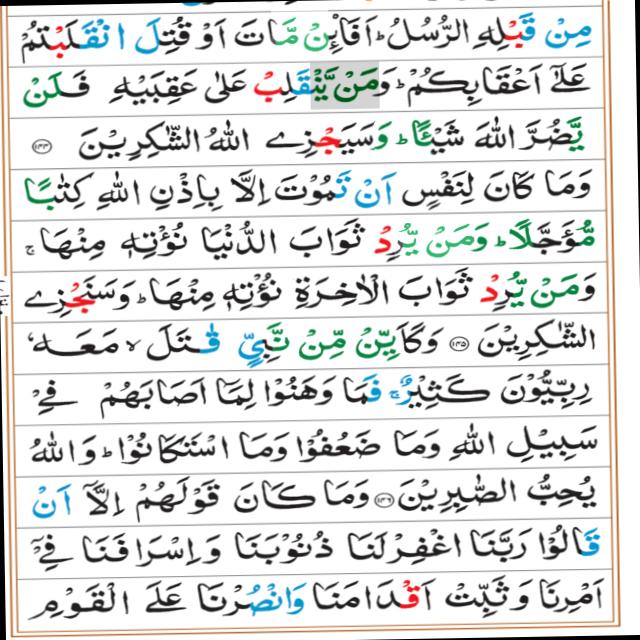 مِنْ قَبْلِهِ الرُّسُلُ ؕ اَفَا۠ئِنْ مَّاتَ اَوْ قُتِلَ انْقَلَبْتُمْ
عَلٰٓى اَعْقَابِكُمْ ؕ وَمَنْ يَّنْقَلِبْ عَلٰى عَقِبَيْهِ فَلَنْ
يَّضُرَّ اللّٰهَ شَيْـًٔا ؕ وَسَيَجْزِى اللّٰهُ الشّٰكِرِيْنَ ﴿۱۴۴﴾
وَمَا كَانَ لِنَفْسٍ اَنْ تَمُوْتَ اِلَّا بِاِذْنِ اللّٰهِ كِتٰبًا
مُّؤَجَّلًا ؕ وَمَنْ يُّرِدْ ثَوَابَ الدُّنْيَا نُؤْتِهٖ مِنْهَا ۚ
وَمَنْ يُّرِدْ ثَوَابَ الْاٰخِرَةِ نُؤْتِهٖ مِنْهَا ؕ وَسَنَجْزِى
الشّٰكِرِيْنَ ﴿۱۴۵﴾ وَكَاَيِّنْ مِّنْ نَّبِيٍّ قٰتَلَ ۙ مَعَهٗ
رِبِّيُّوْنَ كَثِيْرٌ ۚ فَمَا وَهَنُوْا لِمَآ اَصَابَهُمْ فِيْ
سَبِيْلِ اللّٰهِ وَمَا ضَعُفُوْا وَمَا اسْتَكَانُوْا ؕ وَاللّٰهُ
يُحِبُّ الصّٰبِرِيْنَ ﴿۱۴۶﴾ وَمَا كَانَ قَوْلَهُمْ اِلَّآ اَنْ
قَالُوْا رَبَّنَا اغْفِرْ لَنَا ذُنُوْبَنَا وَاِسْرَافَنَا فِيْٓ
اَمْرِنَا وَثَبِّتْ اَقْدَامَنَا وَانْصُرْنَا عَلَى الْقَوْمِ